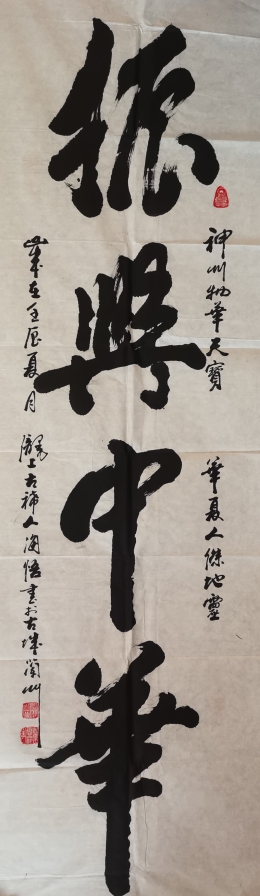 振興中華
神州物華天寶　華夏人傑地靈
歲在壬辰夏月　隴上古稀人海悟書於古城蘭州